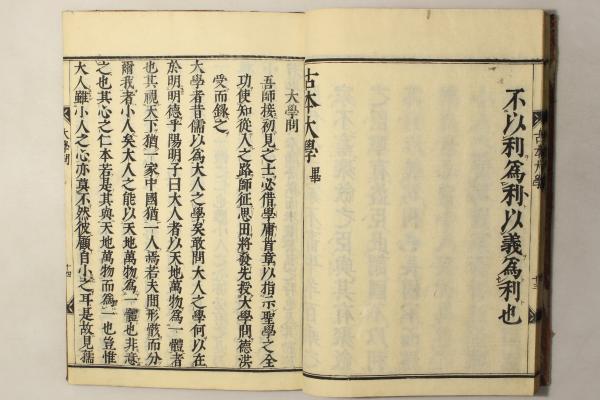 不以利爲利以義爲利也
古本大學
十三
古本大學 畢
大學問
吾師接初見之士必借學庸首章以指示聖學之全
功使知從入之路師征思田將發先授大學問德洪
受而錄之
大學者昔儒以爲大人之學矣敢問大人之學何以在
於明明德乎陽明子曰大人者以天地萬物爲一體者
也其視天下猶一家中國猶一人焉若夫間形骸而分
爾我者小人矣大人之能以天地萬物爲一體也非意
之也其心之仁本若是其與天地萬物而爲一也豈惟
大人雖小人之心亦莫不然彼顧自小之耳是故見孺
大學問
十四